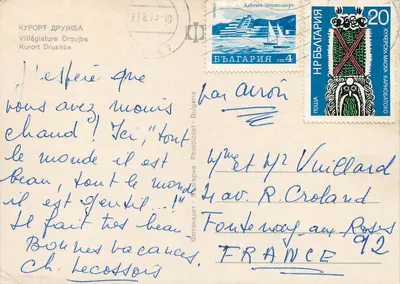 КУРОРТ ДРУЖБА
Villégiature Droujba
Kurort Drushba
J'espère que
vous avez moins
chaud ! Ici, "tout
le monde il est
beau, tout le monde
il est gentil...!"
Il fait très beau
Bonnes vacances.
Ch. Lecossois
Албена-Черноморец
БЪЛГАРИЯ СТ 4
20
НР БЪЛГАРИЯ
ПОЩА
КУКЕРСКА МАСКА КАРНОБАТСКО
par avion
Фотоиздат - България Photoizdat - Bulgaria
Mme et Mr Vuillard
av. R. Croland
Fontenay aux Roses
92
FRANCE